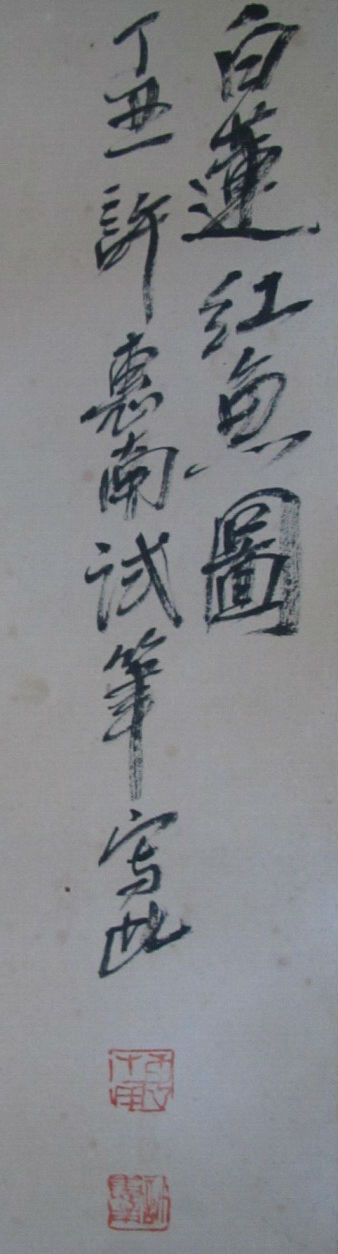 白蓮紅魚圖
丁丑許惠南試筆寫此